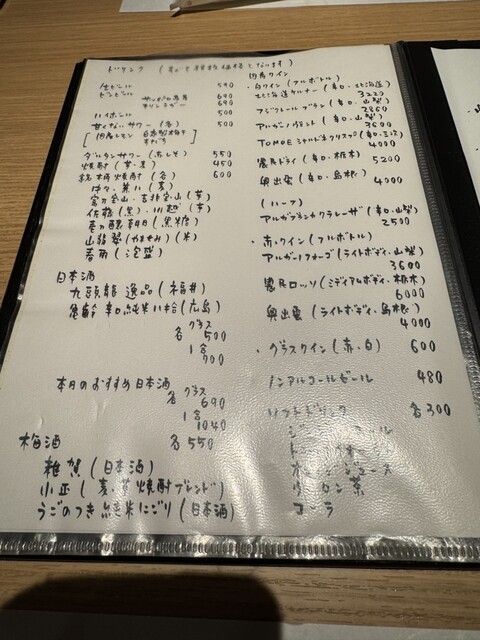 ドリンク (すべて税抜価格となります)
生ビール 590
ビンビール サッポロ赤星 690
キリンラガー 690
ハイボール 500
甘くないサワー (各) 500
[国産レモン 自家製梅干
すだち]
ダルタンサワー (赤しそ) 550
焼酎 (芋・麦) 450
銘柄焼酎 (各) 600
中々・兼八 (麦)
富乃宝山・吉兆宝山 (芋)
佐藤 (黒)・川越 (芋)
壱乃醸朝日 (黒糖)
山翡翠 (やませみ) (米)
春雨 (泡盛)
日本酒
九頭龍 逸品 (福井)
亀齢 辛口純米 八拾 (広島)
各 グラス 500
1合 900
本日のおすすめ日本酒
各 グラス 690
1合 1040
梅酒 各550
雑賀 (日本酒)
小正 (麦・芋焼酎ブレンド)
うごのつき 純米にごり (日本酒)
国産ワイン
・白ワイン (フルボトル)
北海道ケルナー (辛口・北海道) 3220
フジクレール ブラン (辛口・山梨) 2860
アルガーノヴェント (辛口・山梨) 3600
TOMOE シャルドネクリスプ (辛口・三次) 4000
農民ドライ (辛口・栃木) 5200
奥出雲 (辛口・島根) 4000
(ハーフ)
アルガブランカクラレーザ (辛口・山梨) 2500
・赤ワイン (フルボトル)
アルガーノフォーゴ (ライトボディ・山梨) 3600
農民ロッソ (ミディアムボディ・栃木) 6000
奥出雲 (ライトボディ・島根) 4000
・グラスワイン (赤・白) 600
ノンアルコールビール 480
ソフトドリンク 各300
オレンジジュース
ウーロン茶
コーラ